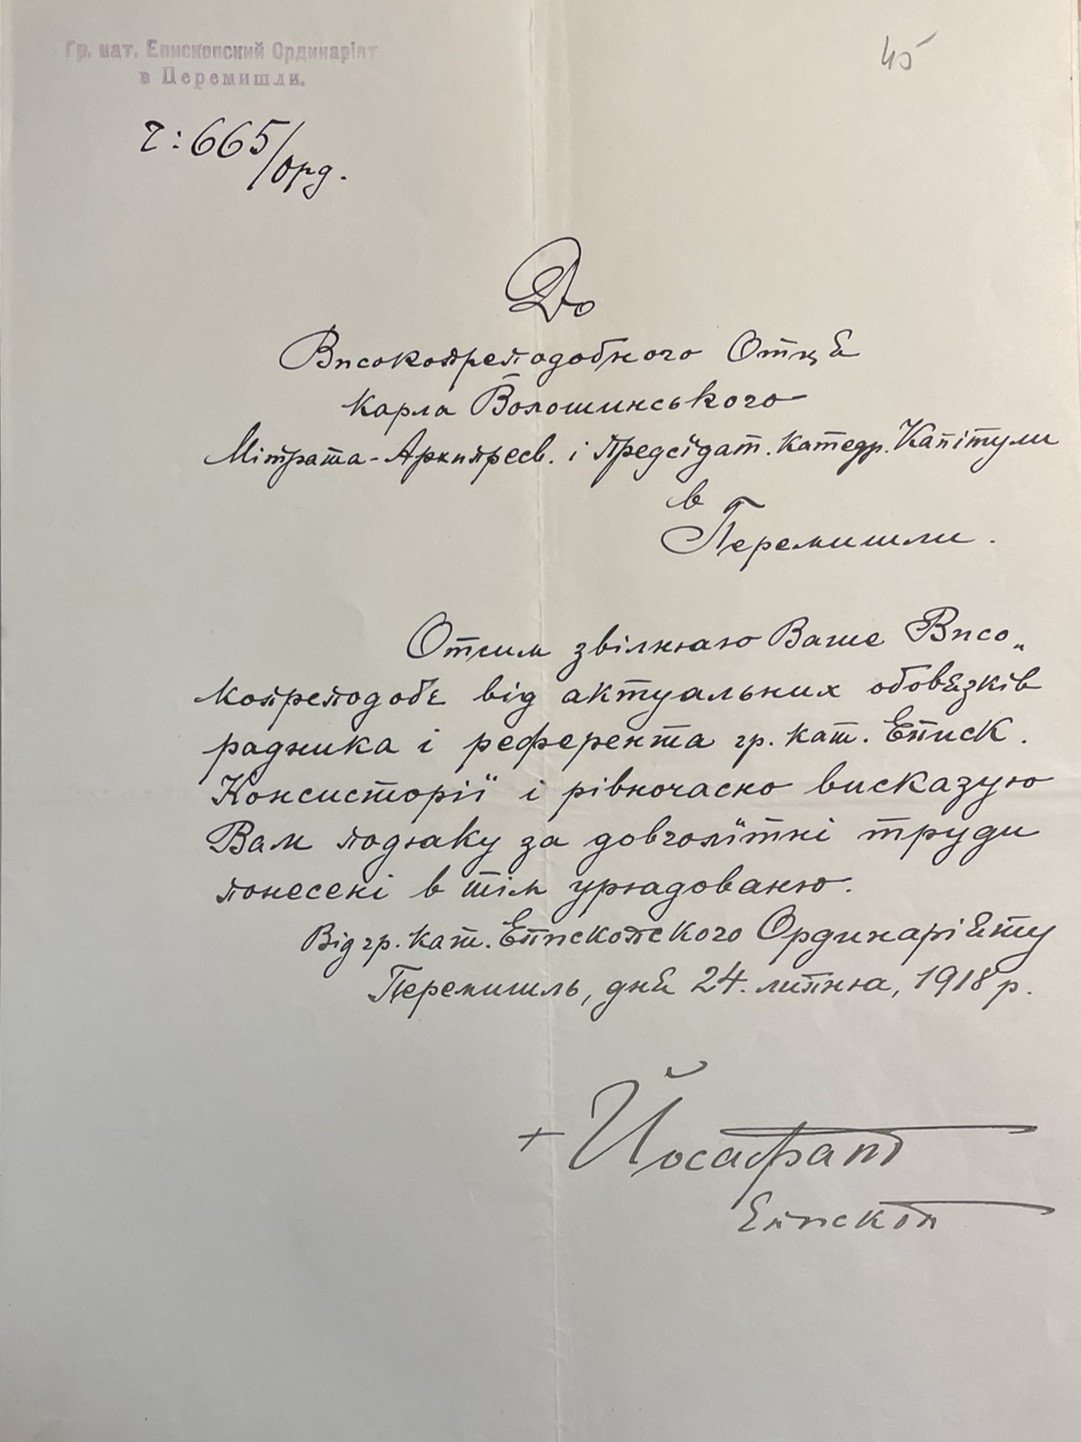 Гр. кат. Епископский Ординаріят
в Перемишли.
45
Ч: 665/орд.
До
Високопреподобного Отця
Карла Волошинського
Мітрата-Архипресв. і Предсїдат. Катедр. Капітули
в
Перемишли.
Отсим звільняю Ваше Висо„
копреподобє від актуальних обовязків
радника і референта гр. кат. Еписк.
Консисторії і рівночасно висказую
Вам подяку за довголїтні труди
понесені в тім урядованю.
Від гр. кат. Епископского Ординаріяту
Перемишль, дня 24. липня, 1918 р.
+ Йосафат
Епископ